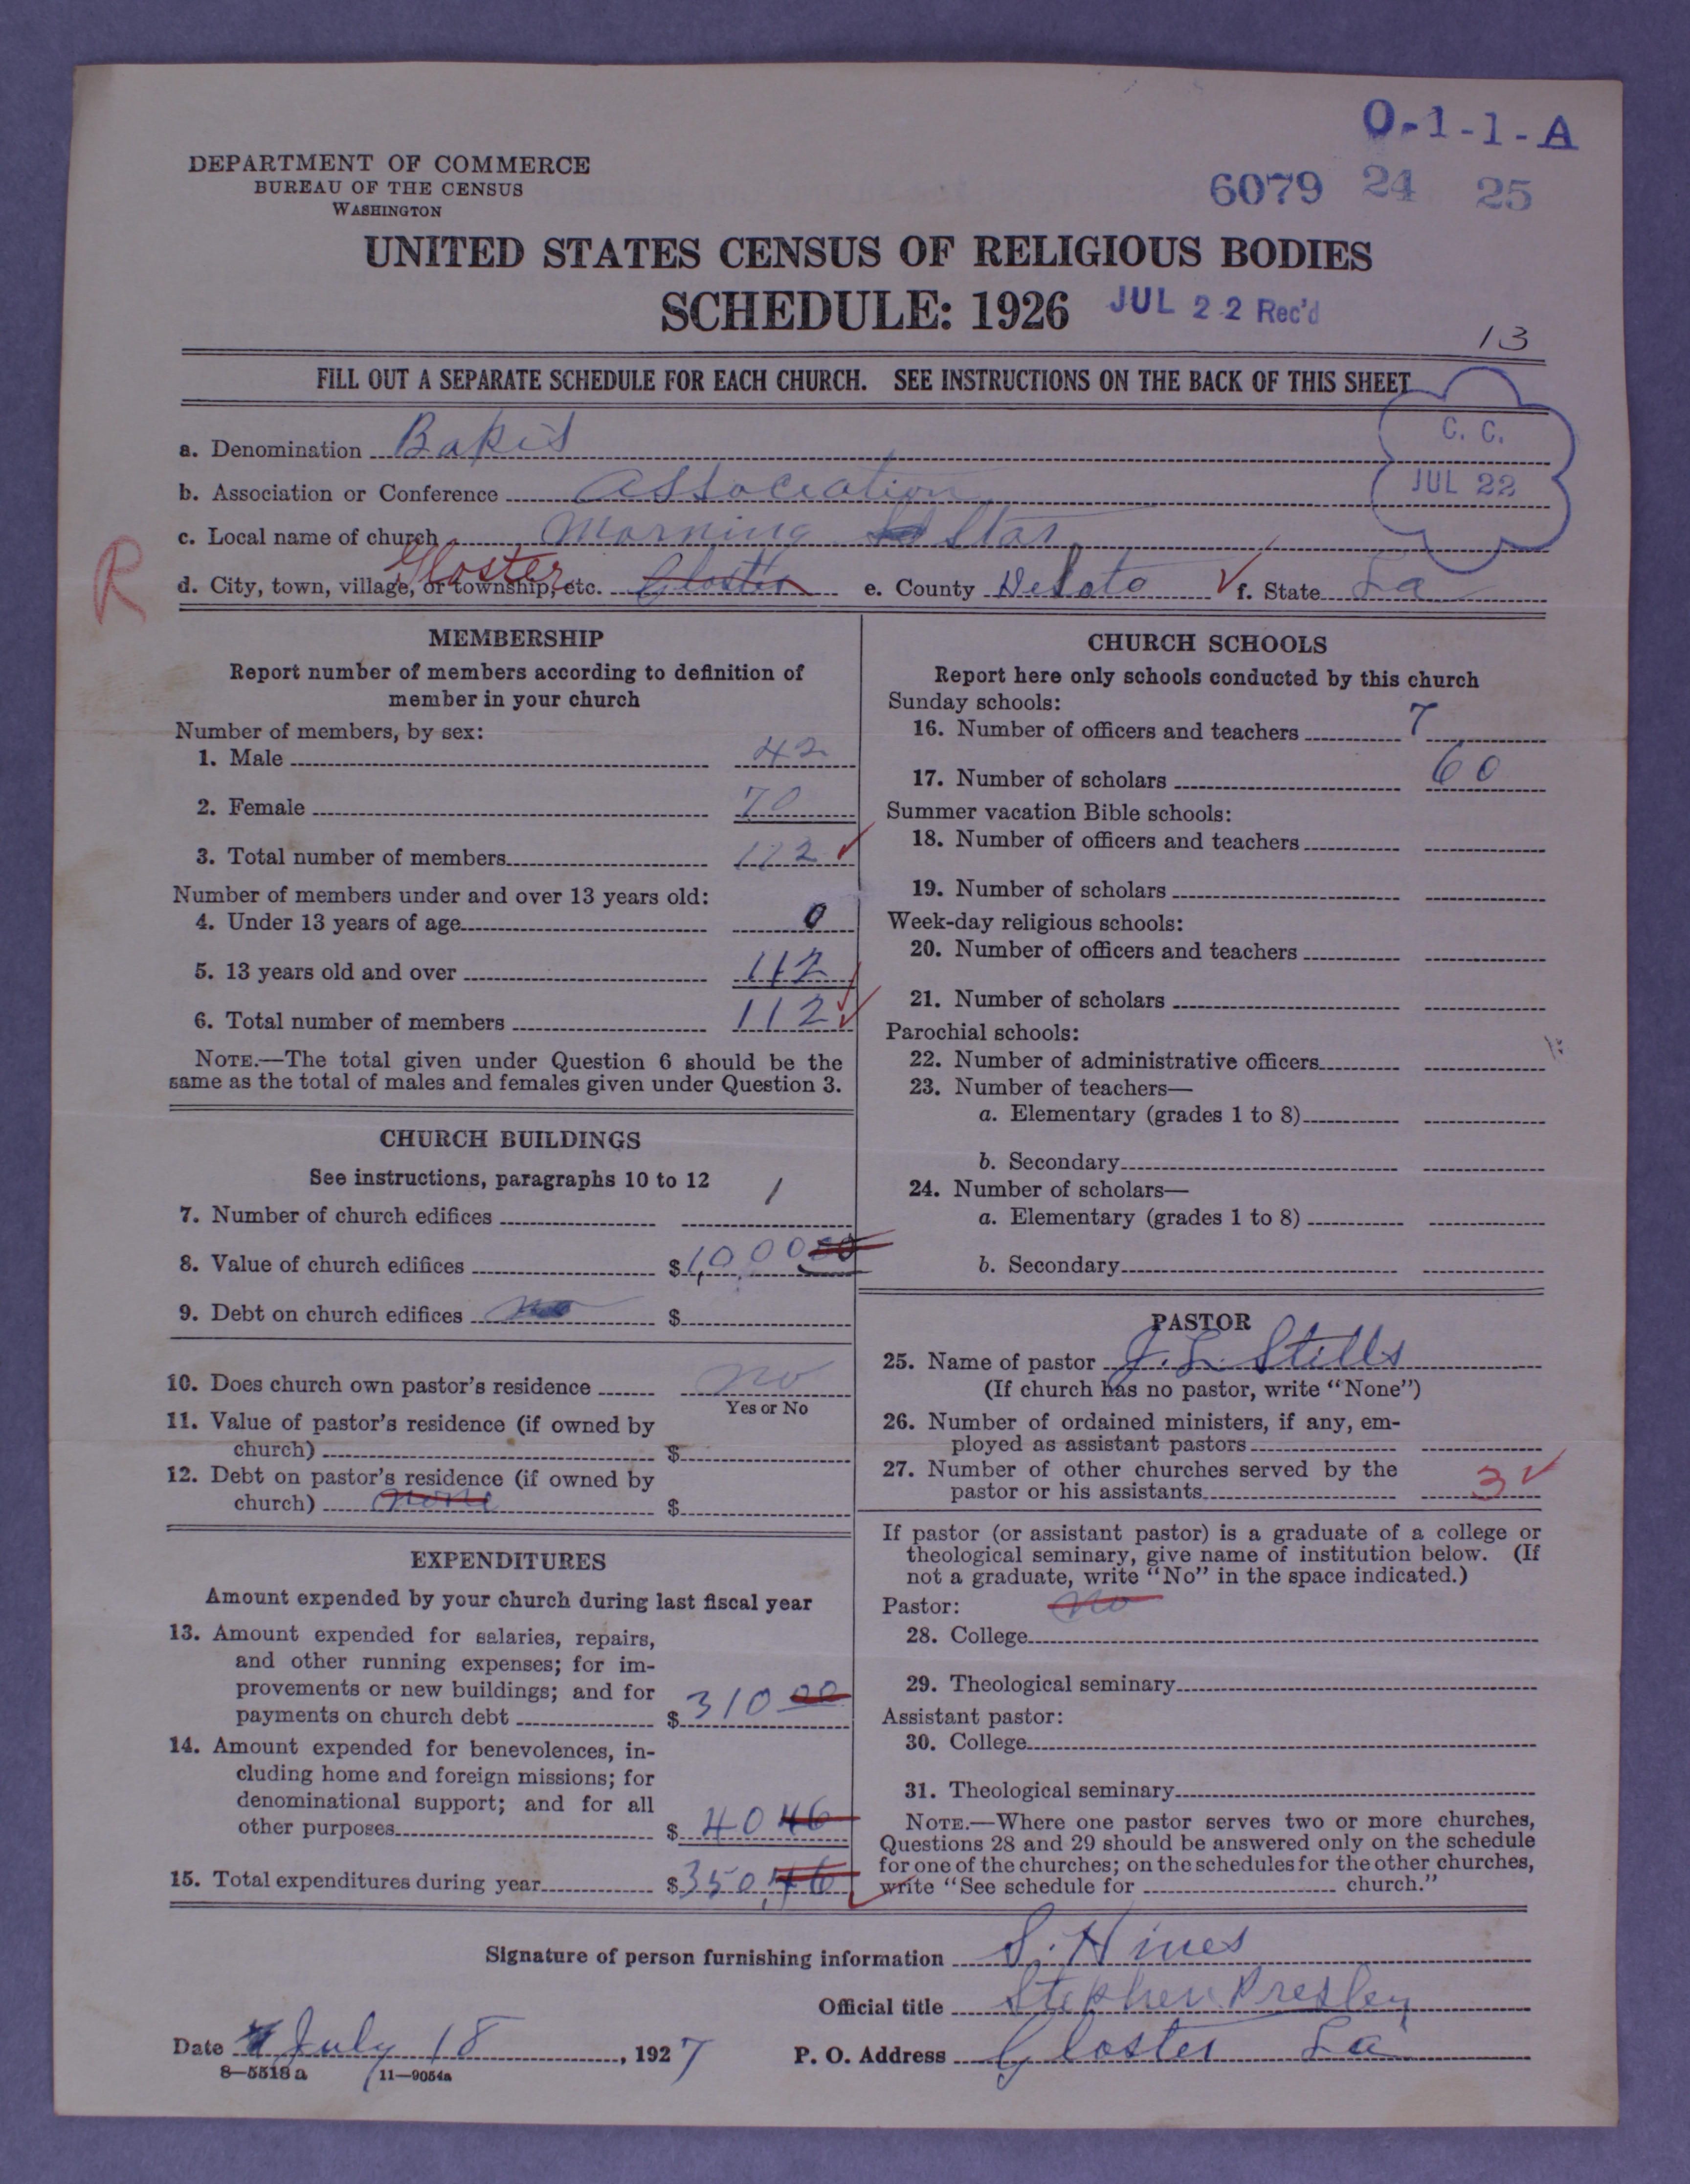 O-1-1-A
DEPARTMENT OF COMMERCE
BUREAU OF THE CENSUS
WASHINGTON
6079 24 25
UNITED STATES CENSUS OF RELIGIOUS BODIES
SCHEDULE: 1926 JUL 22 Rec'd
13
FILL OUT A SEPARATE SCHEDULE FOR EACH CHURCH. SEE INSTRUCTIONS ON THE BACK OF THIS SHEET
C. C.
JUL 22
a. Denomination Bapis
b. Association or Conference Association
c. Local name of church Morning Star
R
d. City, town, village, or township, etc. Gloster Gloster e. County DeSoto f. State La
MEMBERSHIP
Report number of members according to definition of
member in your church
Number of members, by sex:
1. Male 42
2. Female 70
3. Total number of members 112
Number of members under and over 13 years old:
4. Under 13 years of age 0
5. 13 years old and over 112
6. Total number of members 112
NOTE.—The total given under Question 6 should be the
same as the total of males and females given under Question 3.
CHURCH BUILDINGS
See instructions, paragraphs 10 to 12
7. Number of church edifices 1
8. Value of church edifices $1,000 00
9. Debt on church edifices no $
10. Does church own pastor's residence no
Yes or No
11. Value of pastor's residence (if owned by
church) $
12. Debt on pastor's residence (if owned by
church) none $
EXPENDITURES
Amount expended by your church during last fiscal year
13. Amount expended for salaries, repairs,
and other running expenses; for im-
provements or new buildings; and for
payments on church debt $310 00
14. Amount expended for benevolences, in-
cluding home and foreign missions; for
denominational support; and for all
other purposes $40 46
15. Total expenditures during year $350,46
CHURCH SCHOOLS
Report here only schools conducted by this church
Sunday schools:
16. Number of officers and teachers 7
17. Number of scholars 60
Summer vacation Bible schools:
18. Number of officers and teachers
19. Number of scholars
Week-day religious schools:
20. Number of officers and teachers
21. Number of scholars
Parochial schools:
22. Number of administrative officers
23. Number of teachers—
a. Elementary (grades 1 to 8)
b. Secondary
24. Number of scholars—
a. Elementary (grades 1 to 8)
b. Secondary
PASTOR
25. Name of pastor J. L. Stills
(If church has no pastor, write "None")
26. Number of ordained ministers, if any, em-
ployed as assistant pastors
27. Number of other churches served by the
pastor or his assistants 3
If pastor (or assistant pastor) is a graduate of a college or
theological seminary, give name of institution below. (If
not a graduate, write "No" in the space indicated.)
Pastor: no
28. College
29. Theological seminary
Assistant pastor:
30. College
31. Theological seminary
NOTE.—Where one pastor serves two or more churches,
Questions 28 and 29 should be answered only on the schedule
for one of the churches; on the schedules for the other churches,
write "See schedule for church."
Signature of person furnishing information S. Hines
Official title Stephen Presley
Date July 18, 1927 P. O. Address Gloster La
8—5518a 11—9054a